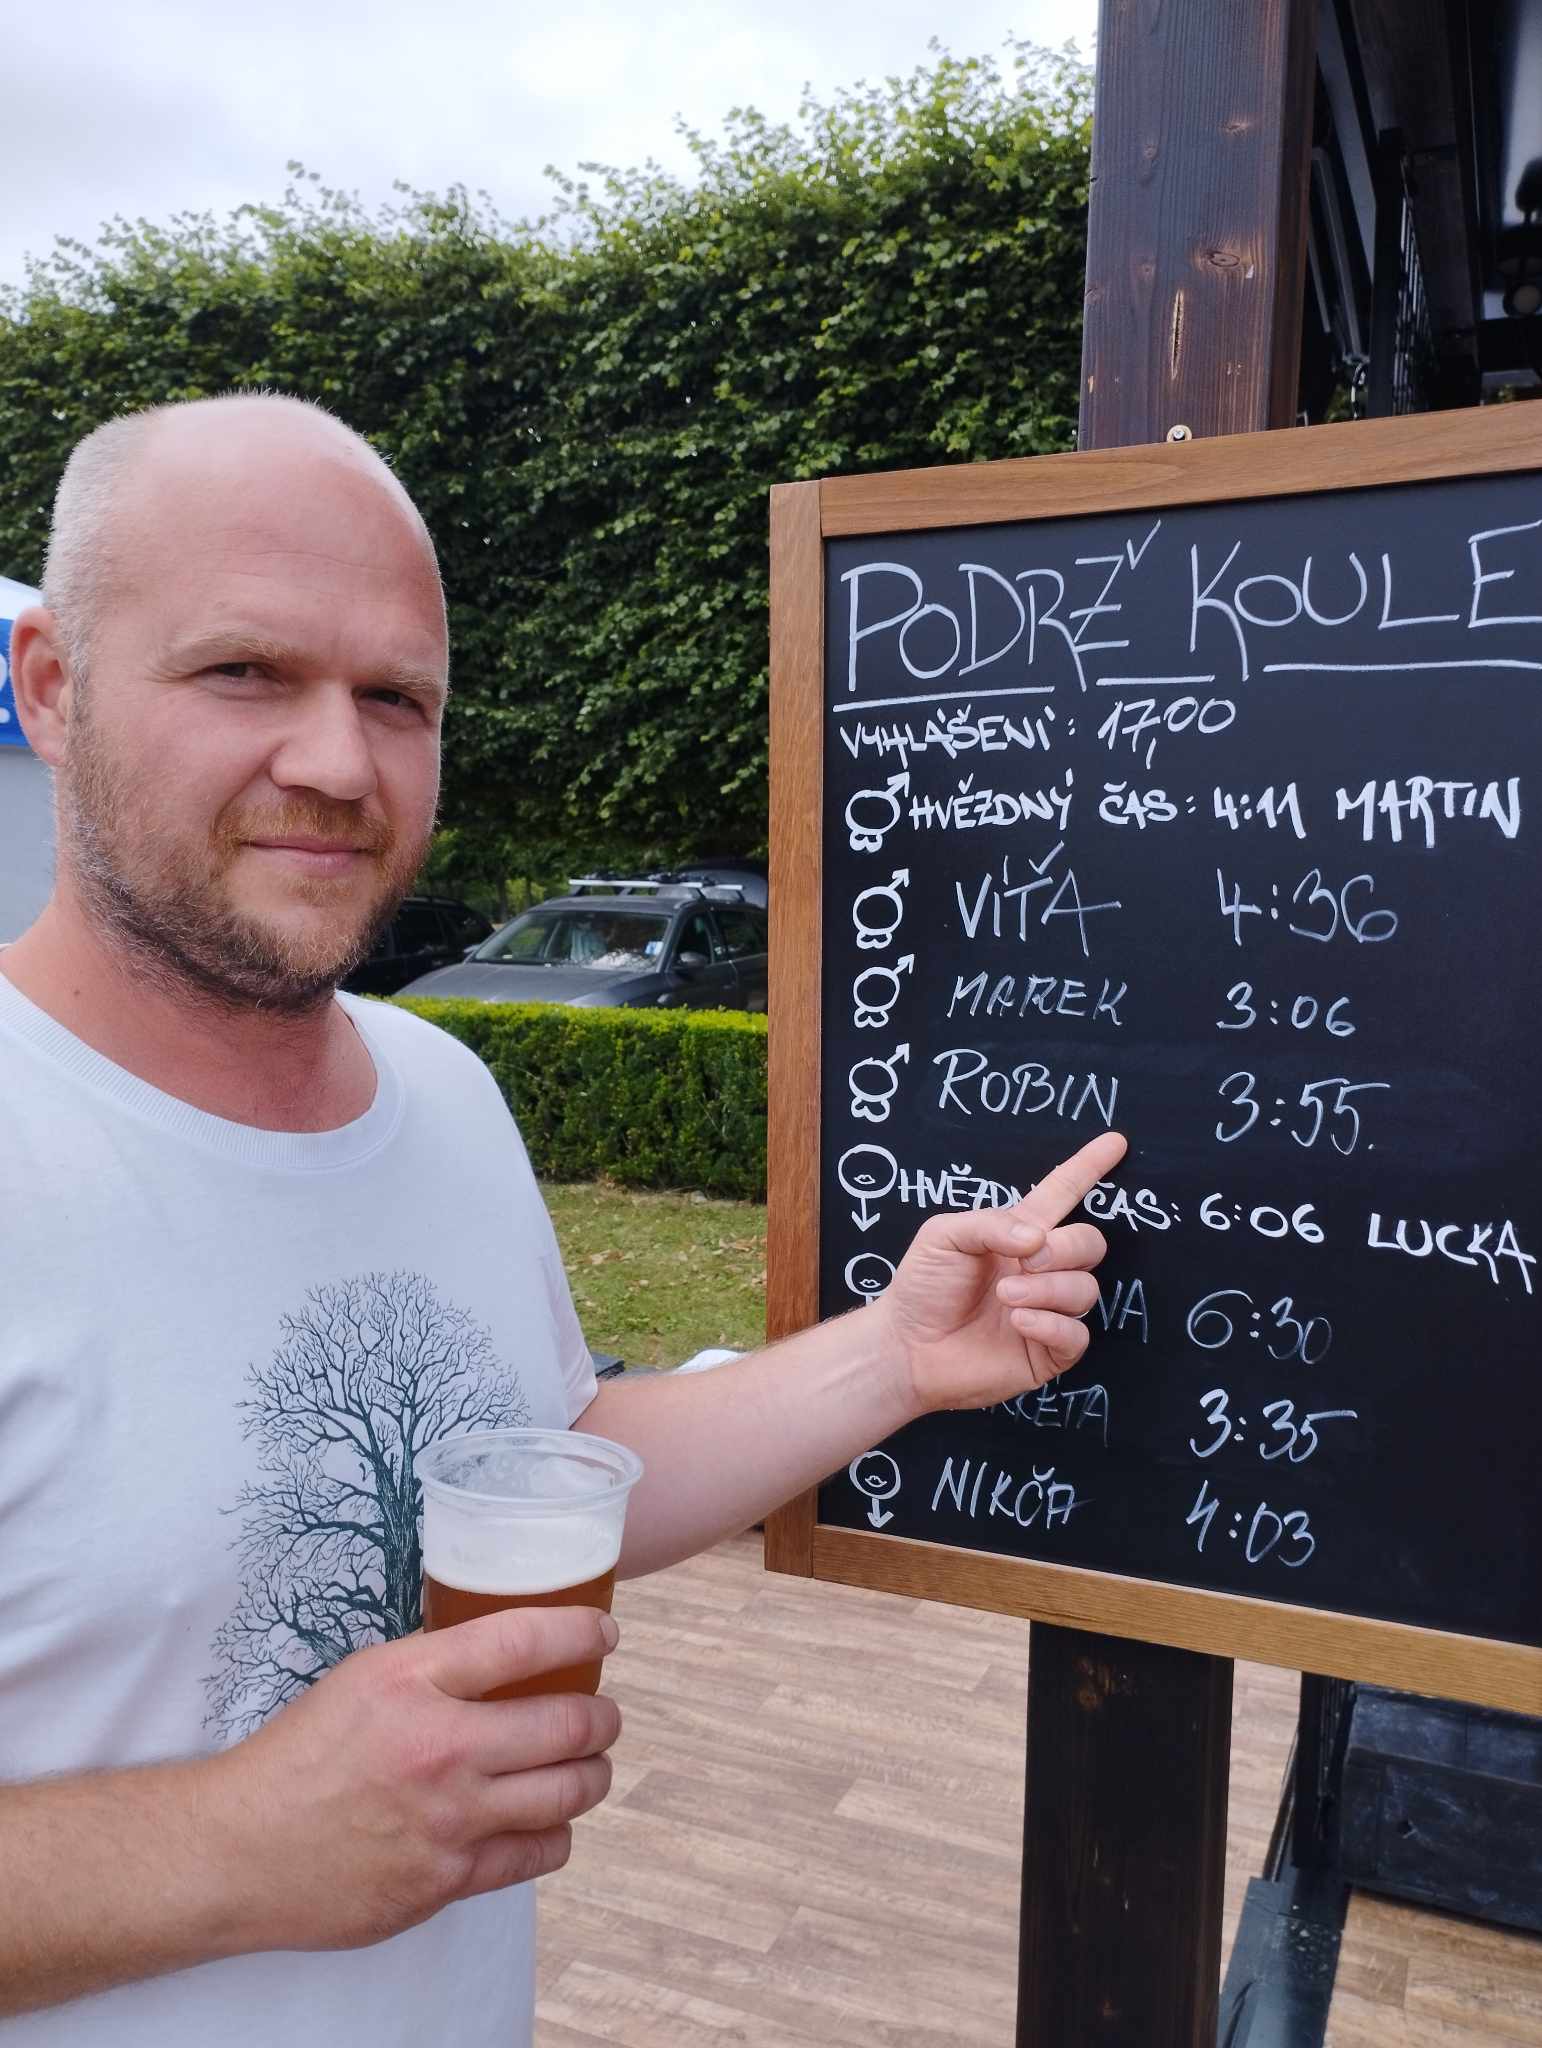 PODRŽ KOULE
VYHLÁŠENÍ: 17,00
HVĚZDNÝ ČAS: 4:11 MARTIN
VÍŤA 4:36
MAREK 3:06
ROBIN 3:55.
ČAS: 6:06 LUCKA
6:30
3:35
NIKČA 4:03